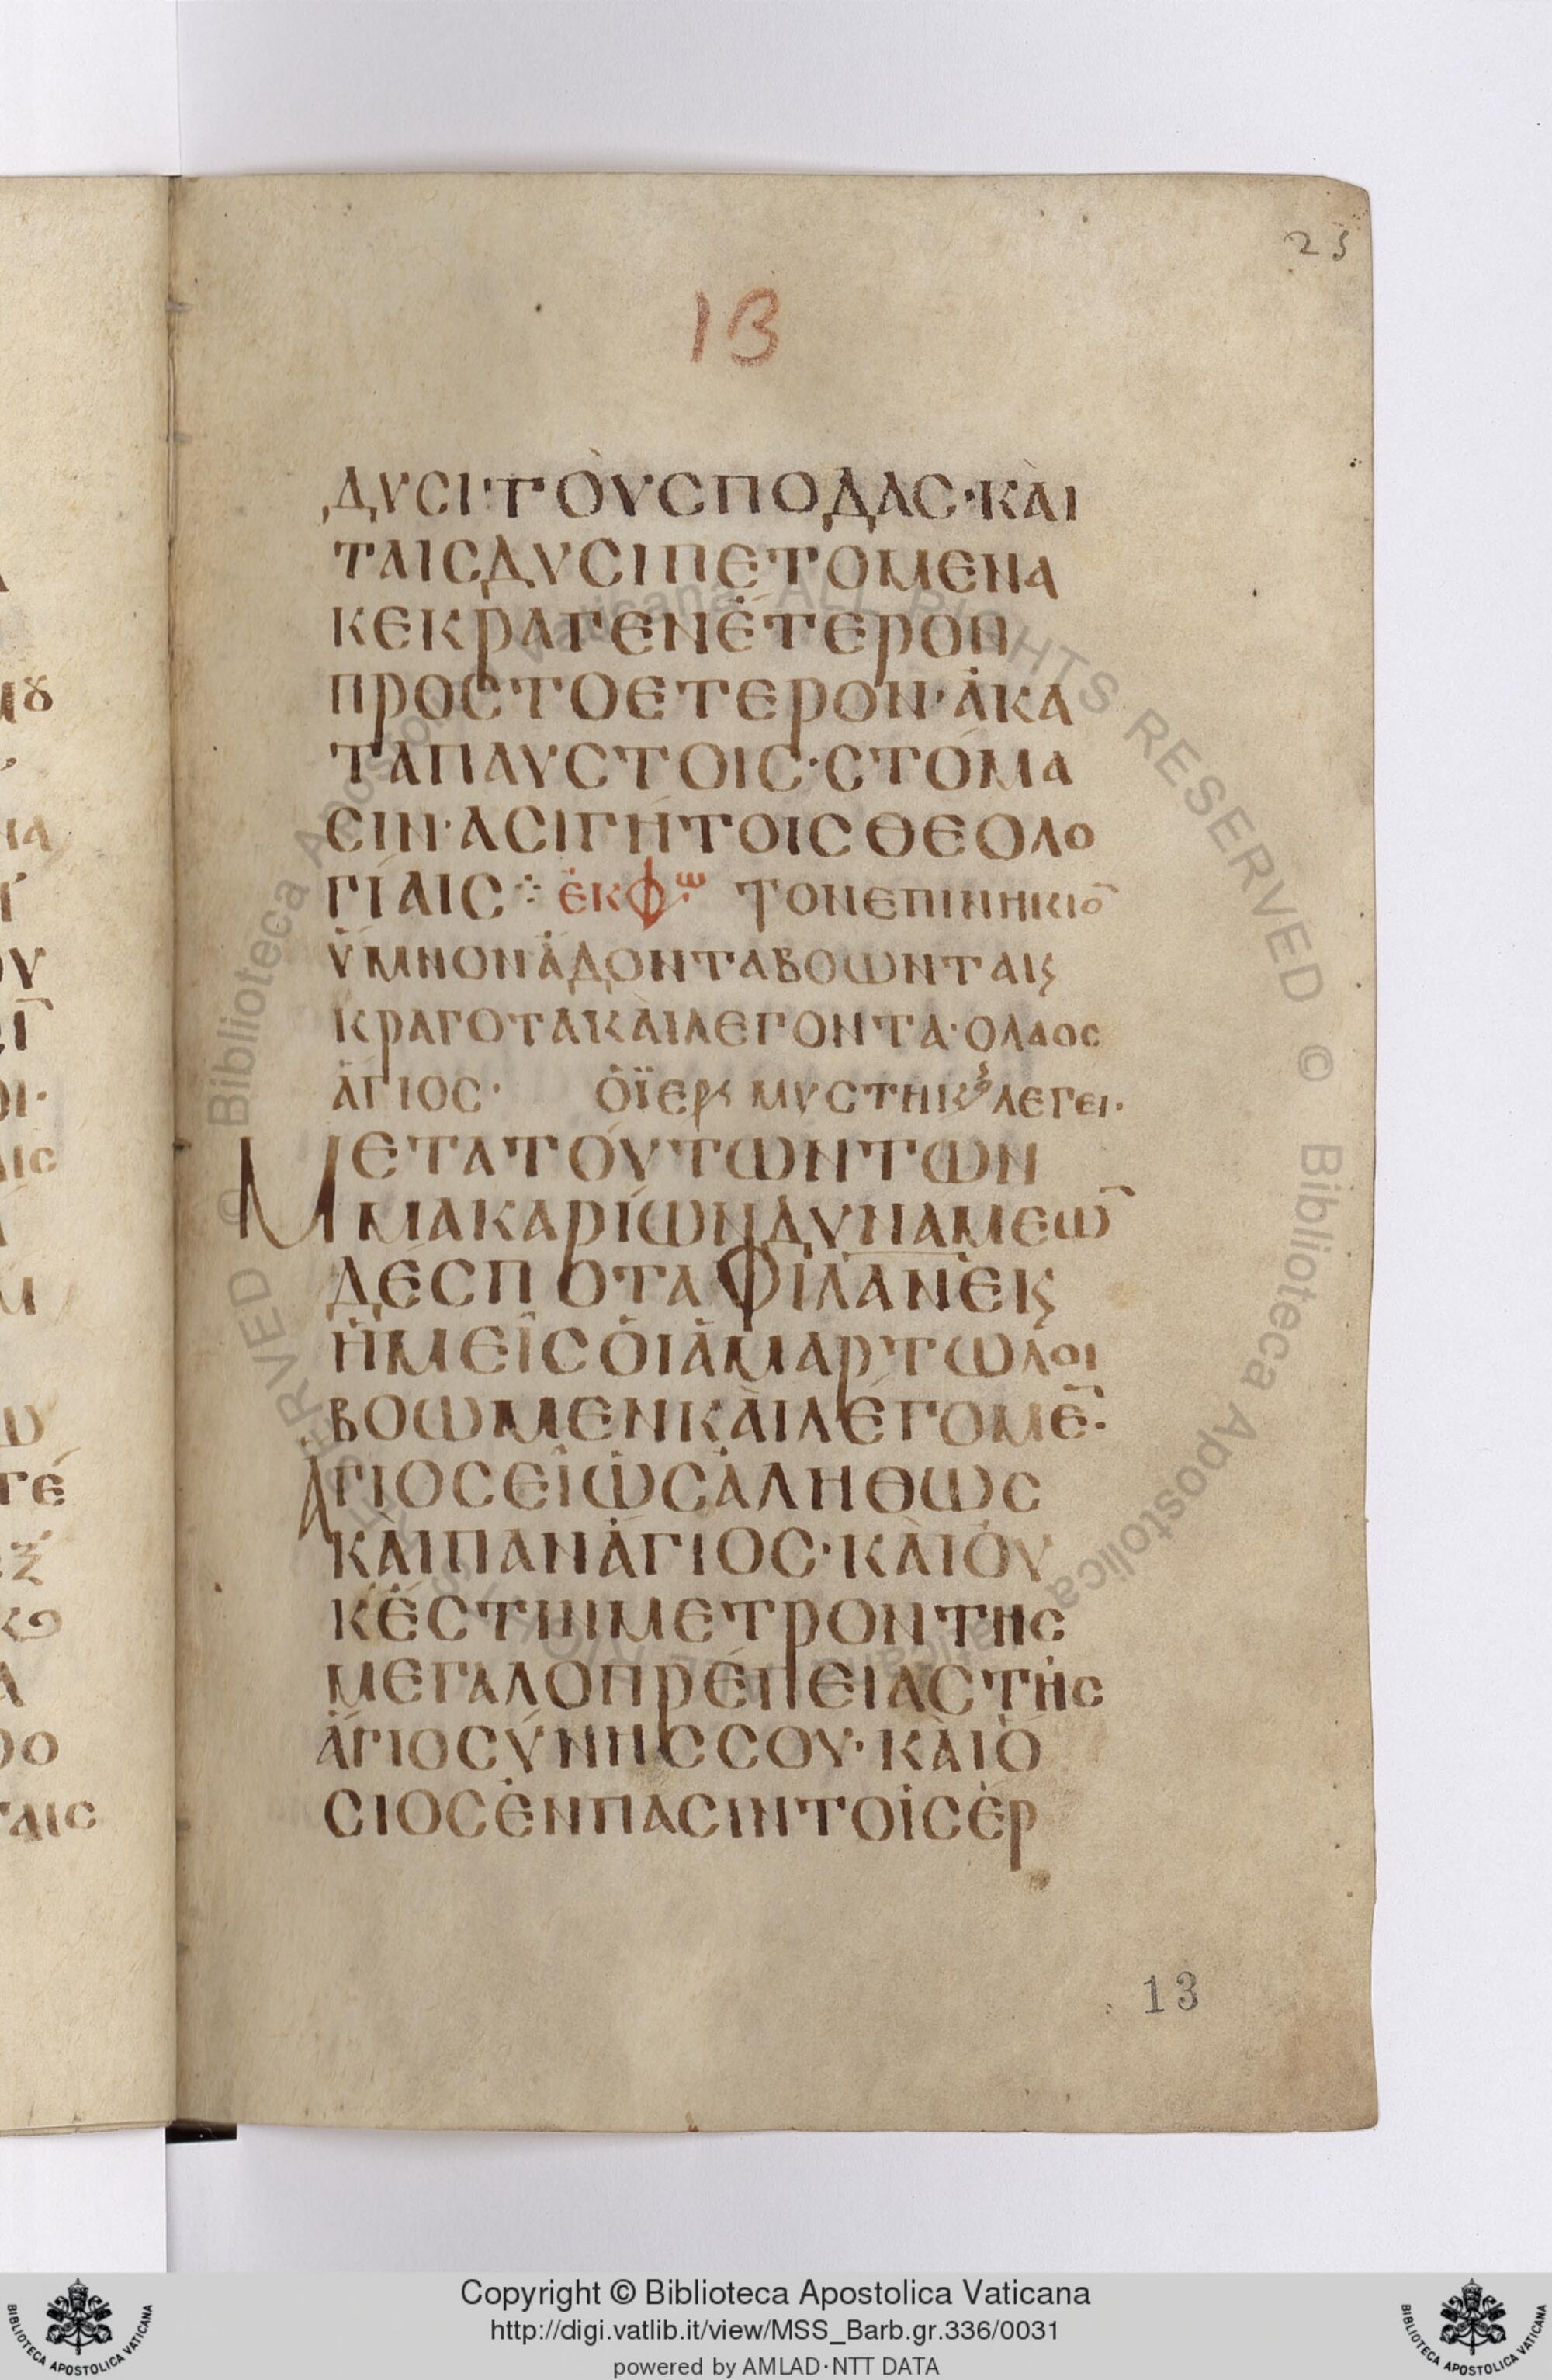 25
13
ΔΥCΙ·ΤΟῪCΠΟΔΑC·ΚΑῚ
ΤΑΙCΔΥCΙΠΕΤΟΜΕΝΑ
ΚΕΚΡΑΓΕΝἕΤΕΡΟΠ
ΠΡΟCΤΟΕΤΕΡΟΝ·ἀΚΑ
ΤΑΠΑΥCΤΟΙC·CΤΌΜΑ
CΙΝ·ΑCΙΓΉΤΟΙCΘΕΟΛΟ
ΓΊΑΙC⁘ ἐΚΦω ΤΟΝΕΠΙΝΗΚΙΟ̅
ὝΜΝΟΝἄΔΟΝΤΑΒΟΩΝΤΑΙϚ
ΚΡΑΓΟΤΑΚΑῚΛΕΓΟΝΤΑ·ΟΛΑΟC
ἍΓΙΟC· ὉΪΕΡϚ ΜΥCΤΗΚ ΛΕΓΕΙ·
ΜΕΤΑΤΟΎΤΩΝΤΩΝ
ΜΑΚΑΡΊΩΝΔΥΝΑΜΕΩ̅
ΔΈCΠΟΤΑΦΙΛΑΝΕΚϚ
ἩΜΕῖCὉΙἁΜΑΡΤΩΛΟΙ
ΒΟΩΜΕΝΚΑῚΛΈΓΟΜΕ̅·
ἍΓΙΟCΕῖὩCἀΛΗΘΩC
ΚΑῚΠΑΝἅΓΙΟC·ΚΑῚΟὐ
ΚἔCΤΗΙΜΕΤΡΟΝΤΗC
ΜΕΓΑΛΟΠΡΈΠΕΙΑCΤῆC
ἍΓΙΟCΎΝΗCCΟΥ·ΚΑῚὍ
CΙΟCἐΝΠΑCΙΝΤΟῖCἐΡ
13
Copyright © Biblioteca Apostolica Vaticana
http://digi.vatlib.it/view/MSS_Barb.gr.336/0031
powered by AMLAD·NTT DATA